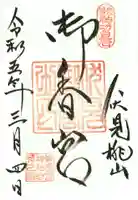 伏見桃山
御香宮
令和五年三月四日